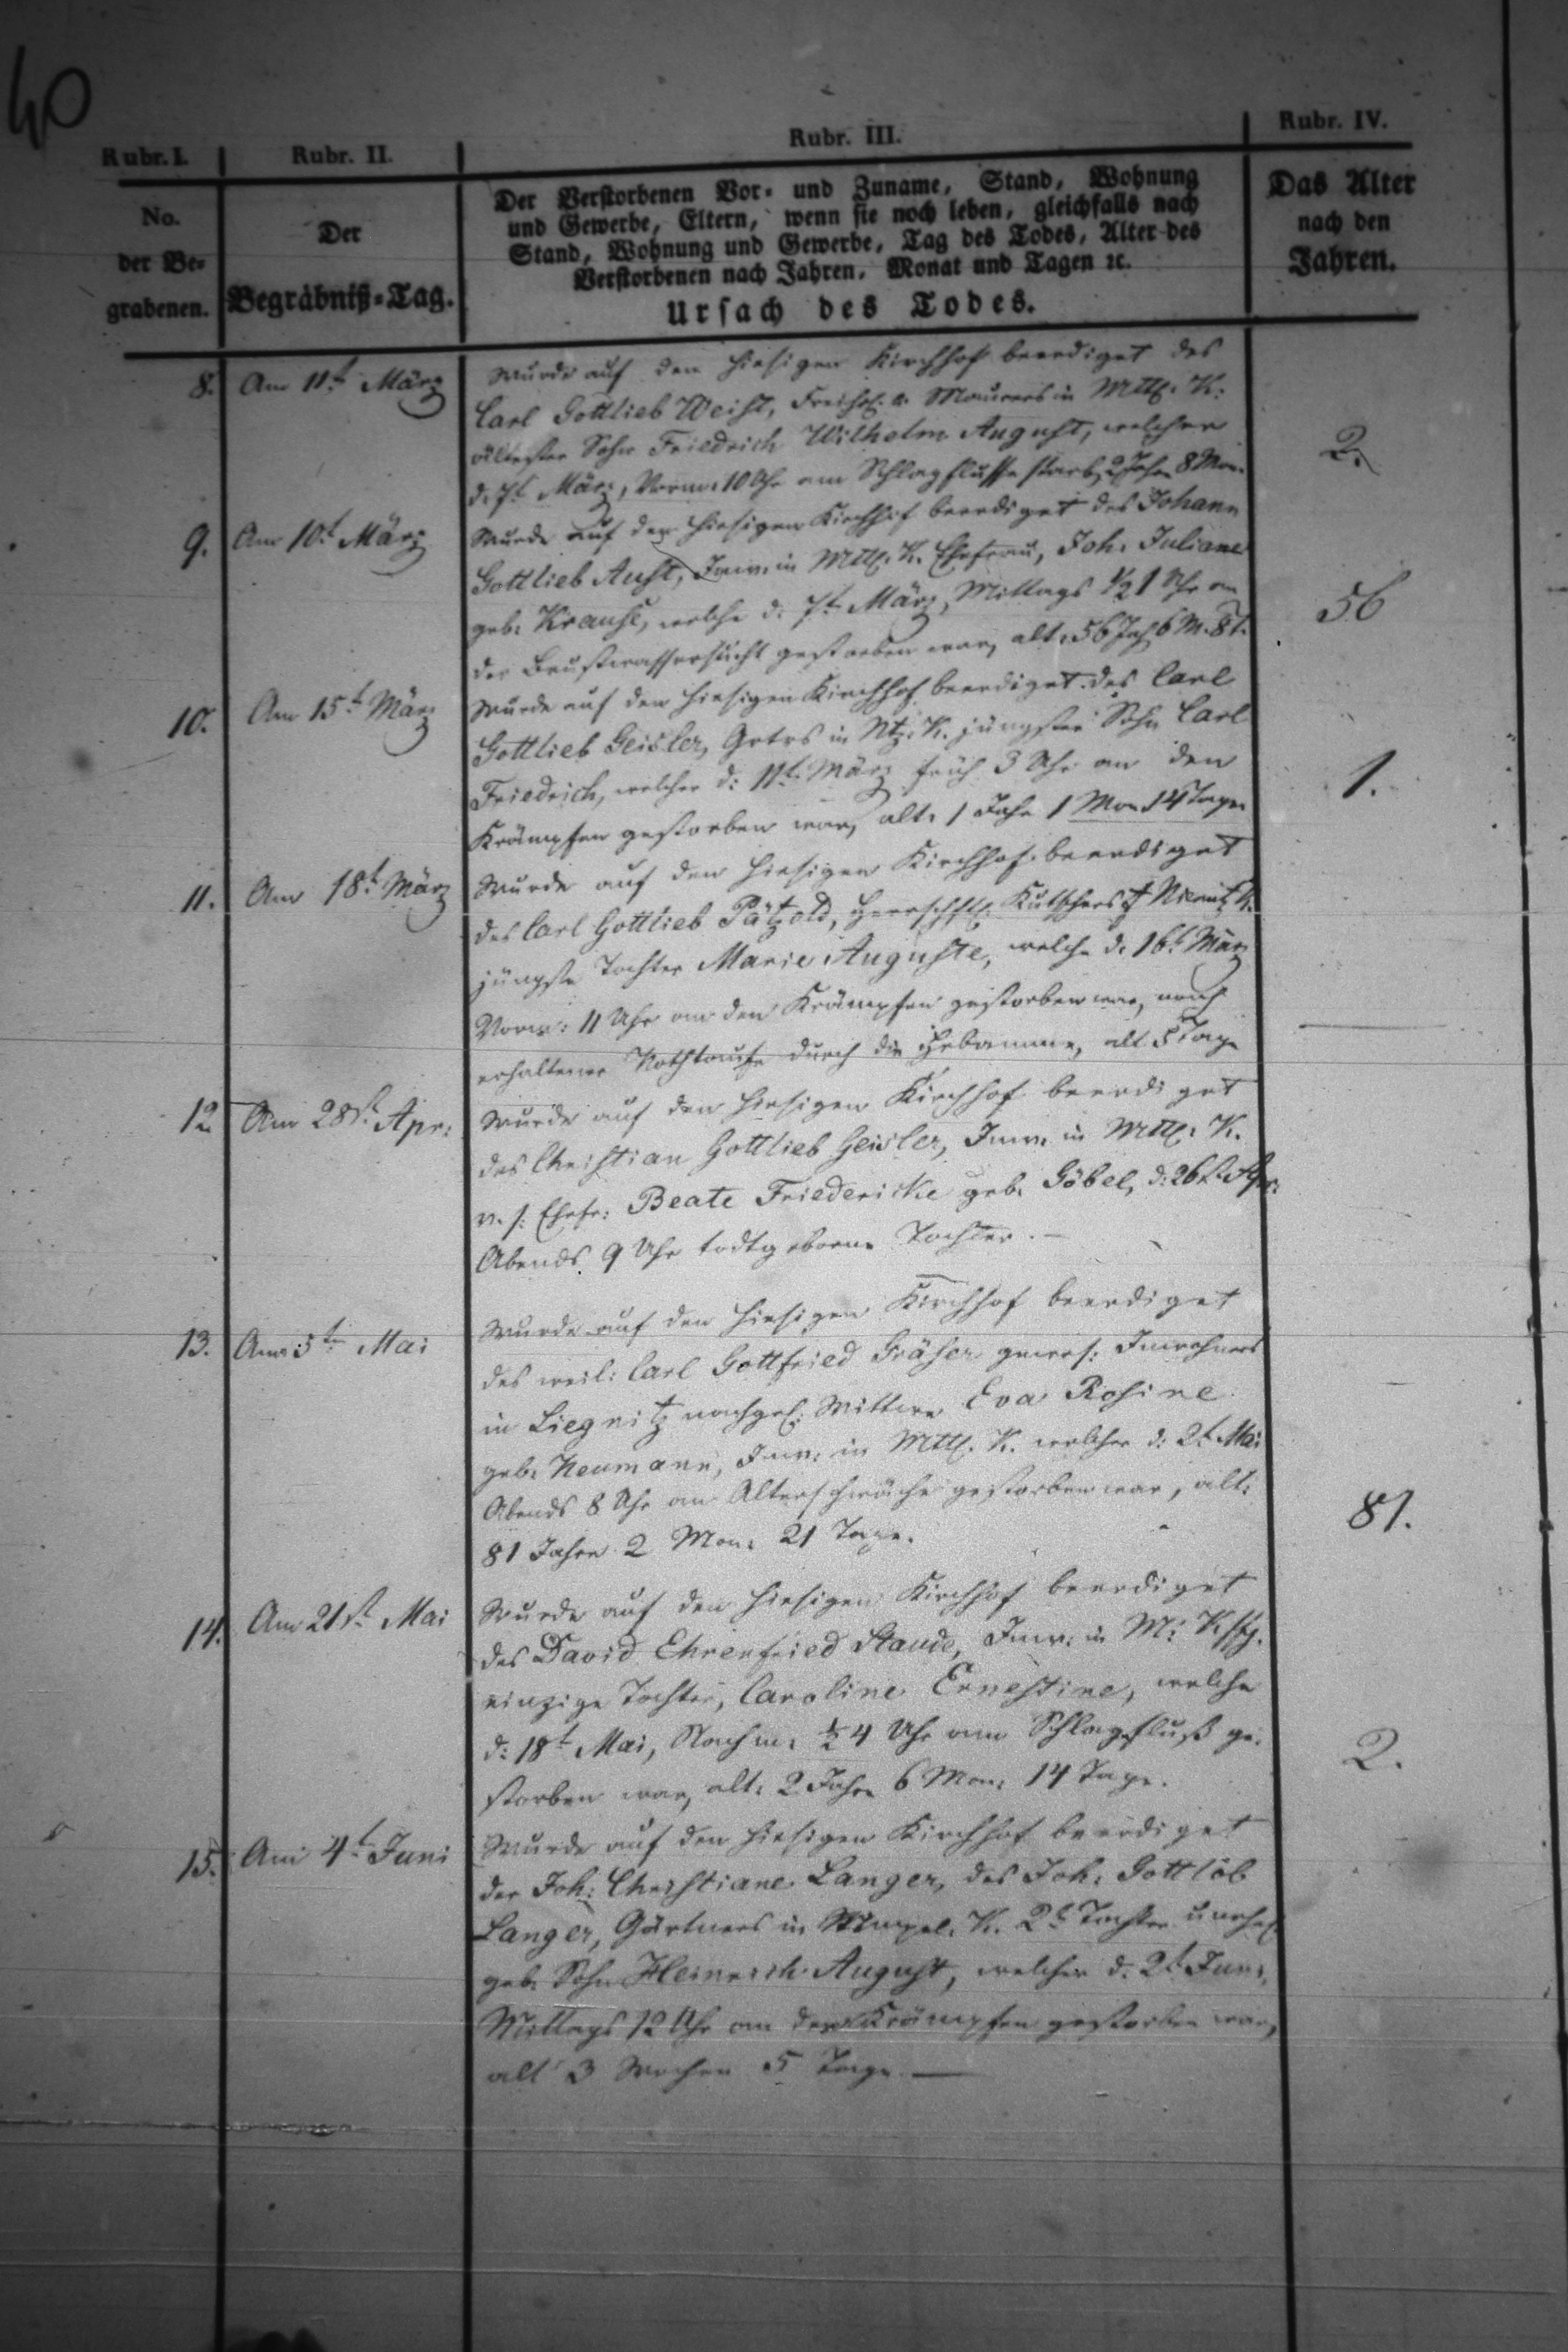 40
Rubr. I.
Rubr. II.
Rubr. III.
Rubr. IV.
No.
der Be-
grabenen.
Der
Begräbniß-Tag.
Der Verstorbenen Vor- und Zuname, Stand, Wohnung
und Gewerbe, Eltern, wenn sie noch leben, gleichfalls nach
Stand, Wohnung und Gewerbe, Tag des Todes, Alter des
Verstorbenen nach Jahren, Monat und Tagen ꝛc.
Ursach des Todes.
Das Alter
nach den
Jahren.
8. Am 11t. März
wurde auf den hiesigen Kirchhof beerdiget des
Carl Gottlieb Weist, Freihsl. u. Maurers in Mttl. K:
ältester Sohn Friedrich Wilhelm August, welcher
d. 7t. März, Vorm. 10 Uhr am Schlagflusse starb, 2 Jahr 8 Mon.
2.
9. Am 10t. März
wurde auf den hiesigen Kirchhof beerdiget des Johann
Gottlieb Aust, Inw. in Mttl. K. Ehefrau, Joh. Juliane
geb. Krause, welche d. 7t. März, Mittags ½ 1 Uhr an
der Brustwassersucht gestorben war, alt. 56 Jah. 6 M. 8 T.
56
10. Am 15t. März
wurde auf den hiesigen Kirchhof beerdiget des Carl
Gottlieb Geisler, Grtrs in K. jüngster Sohn Carl
Friedrich, welcher d: 11t. März früh 3 Uhr an den
Krämpfen gestorben war, alt. 1 Jahr 1 Mon 14 Tage
1.
11. Am 18t. März
Wurde auf den hiesigen Kirchhof beerdiget
des Carl Gottlieb Pätzold, Herrschftl. Kutschers
jüngste Tochter Marie Auguste, welche d. 16t. März
Vorm: 11 Uhr an den Krämpfen gestorben war, nach
erhaltener Nothtaufe durch die Hebamme, alt 5 Tage
12 Am 28st. Apr:
Wurde auf den hiesigen Kirchhof beerdiget
des Christian Gottlieb Geisler, Inw. in Mttl. K.
v. s: Ehefr: Beate Friedericke geb. Göbel, d: 26st. Apr.
Abends 9 Uhr todtgeborne Tochter. —
13. Am 5t. Mai
Wurde auf den hiesigen Kirchhof beerdiget
des weil: Carl Gottfried Gräser gewes: Inwohners
in Liegnitz nachgel: Wittwe Eva Rosine
geb. Neumann, Inw: in Mttl. K. welche d: 2t. Mai
Abends 8 Uhr an Altersschwäche gestorben war, alt:
81 Jahre 2 Mon. 21 Tage.
81.
14. Am 21st. Mai
Wurde auf den hiesigen Kirchhof beerdiget
des David Ehrenfried Staude, Inw: in M:
einzige Tochter, Caroline Ernestine, welche
d: 18t. Mai, Nachm. ½ 4 Uhr am Schlagfluß ge-
storben war, alt: 2 Jahre 6 Mon: 14 Tage.
2.
15. Am 4t. Juni
Wurde auf den hiesigen Kirchhof beerdiget
der Joh: Christiane Langer, des Joh. Gottlob
Langer, Gärtners in K. 2t. Tochter unehel.
geb. Sohn Heinrich August, welcher d. 2t. Juni,
Mittags 12 Uhr an den Krämpfen gestorben war,
alt 3 Wochen 5 Tage. —